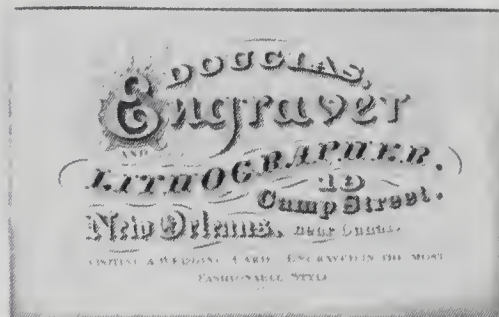 DOUGLAS,
Engraver
AND
LITHOGRAPHER.
19
Camp Street.
New Orleans, near Canal.
VISITING & WEDDING CARDS ENGRAVED IN THE MOST
FASHIONABLE STYLE